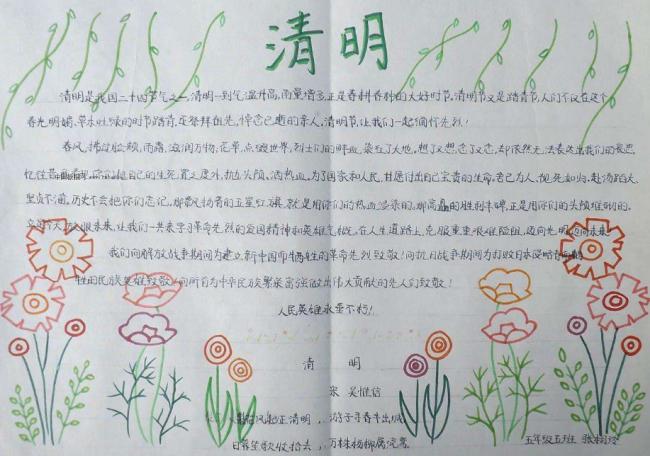 清明
清明是我国二十四节气之一,清明一到气温升高,雨量增多,正是春耕春种的大好时节,清明节又是踏青节,人们不仅在这个
春光明媚,草木吐绿的时节踏青,还祭拜祖先,悼念已逝的亲人,清明节,让我们一起缅怀先烈!
春风,拂过脸颊,雨露,滋润万物,花草,点缀世界,烈士们的鲜血,染红了大地,想了又想,念了又念,却依然无法表达出我们的哀思
你们把自己的生死,置之度外,抛头颅,洒热血,为了国家和人民,甘愿付出自己宝贵的生命,舍己为人,视死如归,赴汤蹈火,
坚贞不渝,历史不会把你们忘记,那鲜艳夺目的五星红旗,就是用你们的热血染录的,那高矗的胜利丰碑,正是用你们的头颅堆砌的,
放眼未来,让我们一起来学习革命先烈的爱国精神和英雄气概,在人生道路上,克服重重艰难险阻,迈向光明,迈向未来!
我们向解放战争期间为建立新中国而牺牲的革命先烈致敬!向抗日战争期间为打败日本侵略者
牲的民族英雄致敬!向所有为中华民族繁荣富强做出伟大贡献的先人们致敬!
人民英雄永垂不朽!
清 明
宋 吴惟信
风起正清明,游子寻春半出城
日暮笙歌收拾去,万株杨柳属流莺
五年级五班 张